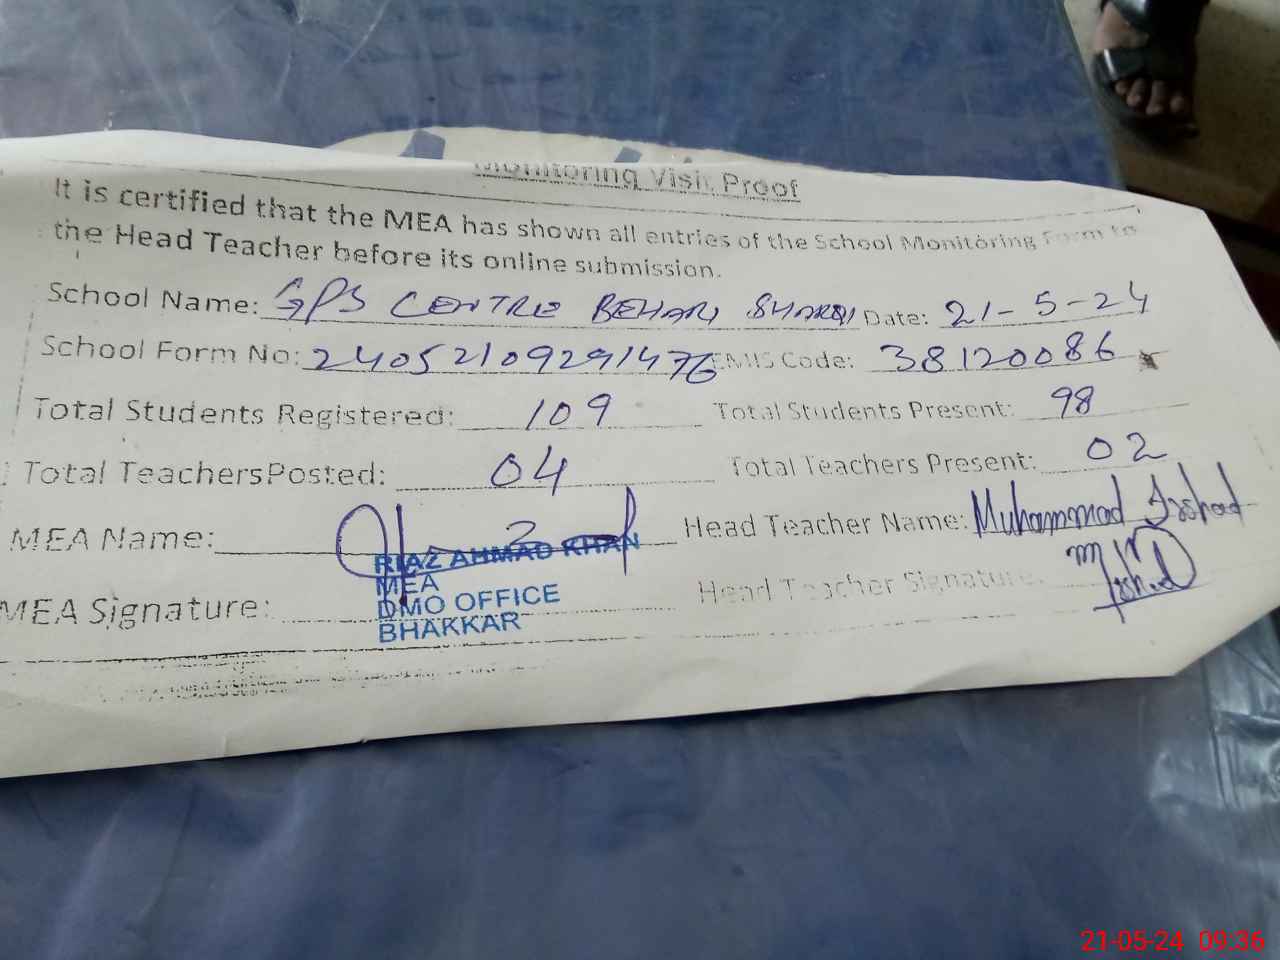 Monitoring Visit Proof
It is certified that the MEA has shown all entries of the School Monitoring Form to
the Head Teacher before its online submission.
School Name: GPS CENTRE BEHARI SHARQI Date: 21-5-24
School Form No: 24052109291476 EMIS Code: 38120086
Total Students Registered: 109 Total Students Present: 98
Total Teachers Posted: 04 Total Teachers Present: 02
MEA Name: Head Teacher Name: Muhammad Irshad
RIAZ AHMAD KHAN
MEA
MEA Signature: Head Teacher Signature: M Irshad
DMO OFFICE
BHAKKAR
21-05-24 09:36